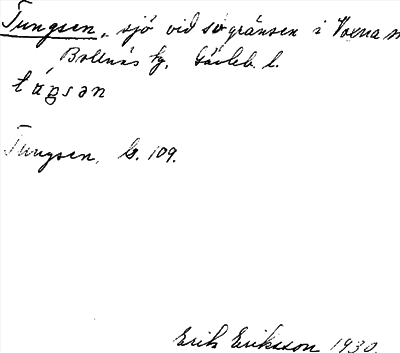 Tungsen, sjö vid sögränsen i Voxna n
Bollnäs tg. Gävleb. l.
tágsən
Tungsen, G. 109.
Erik Eriksson 1930.